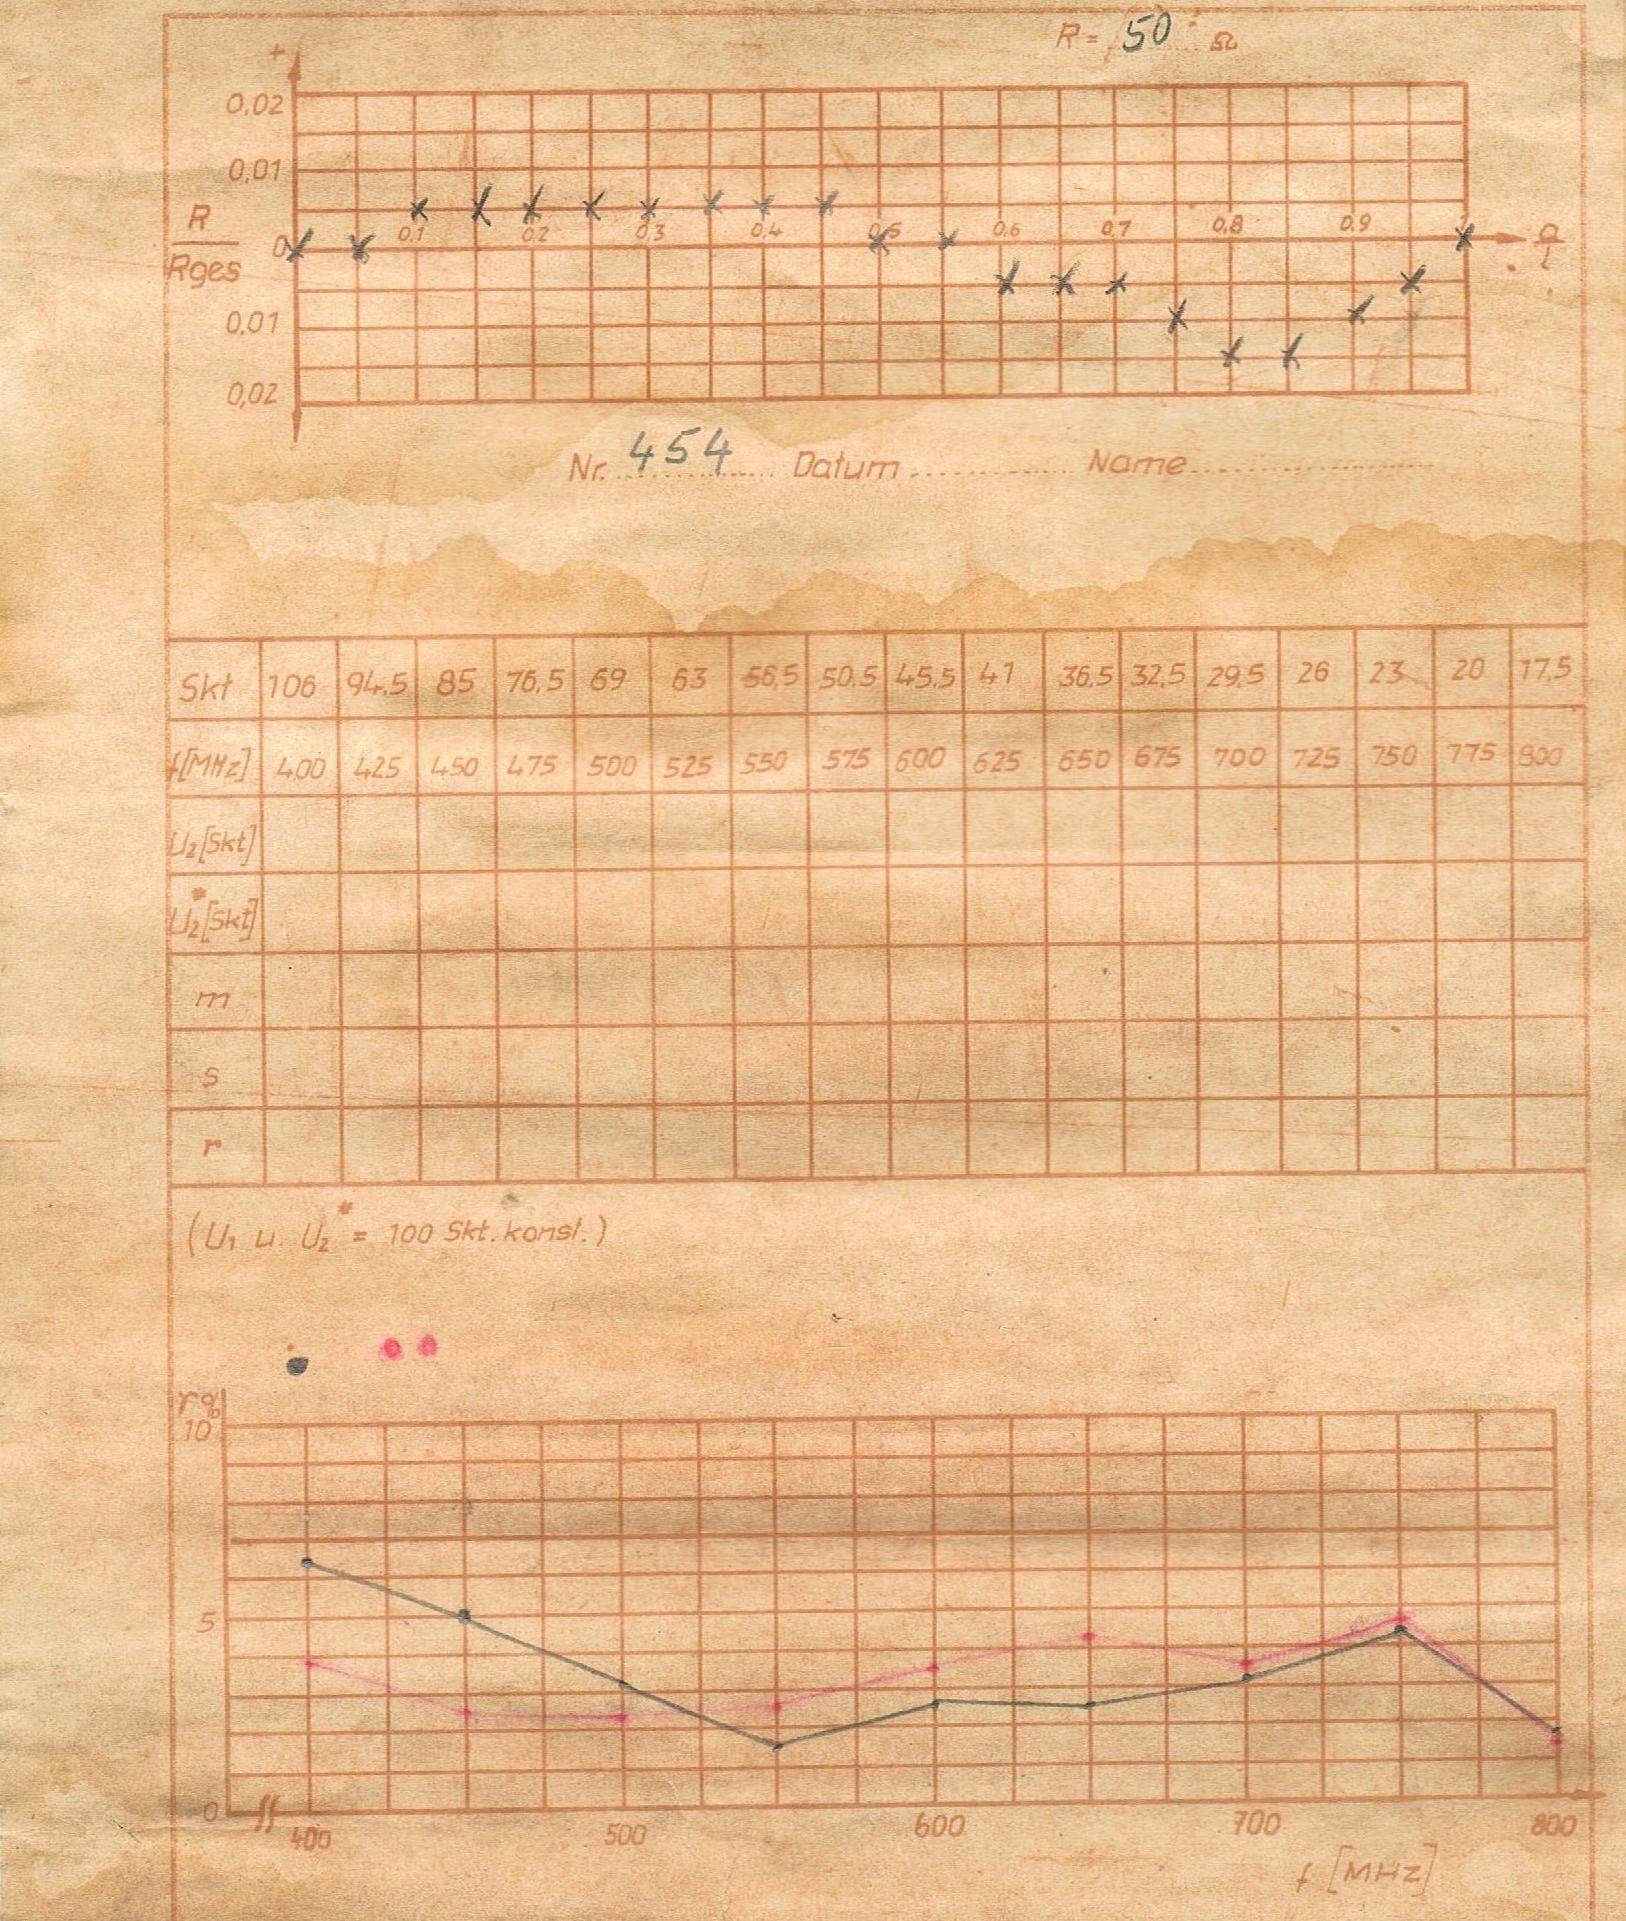 R = 50 Ω
+
0,02
0,01
R
Rges
0
0,1 0,2 0,3 0,4 0,5 0,6 0,7 0,8 0,9 1
a
l
0,01
0,02
Nr. 454 Datum Name
Skt 106 94,5 85 76,5 69 63 56,5 50,5 45,5 41 36,5 32,5 29,5 26 23 20 17,5
f[MHz] 400 425 450 475 500 525 550 575 600 625 650 675 700 725 750 775 800
U₂[Skt]
U₂*[Skt]
m
s
r
(U₁ u. U₂* = 100 Skt. konst.)
r%
10
5
0
400 500 600 700 800
f [MHz]